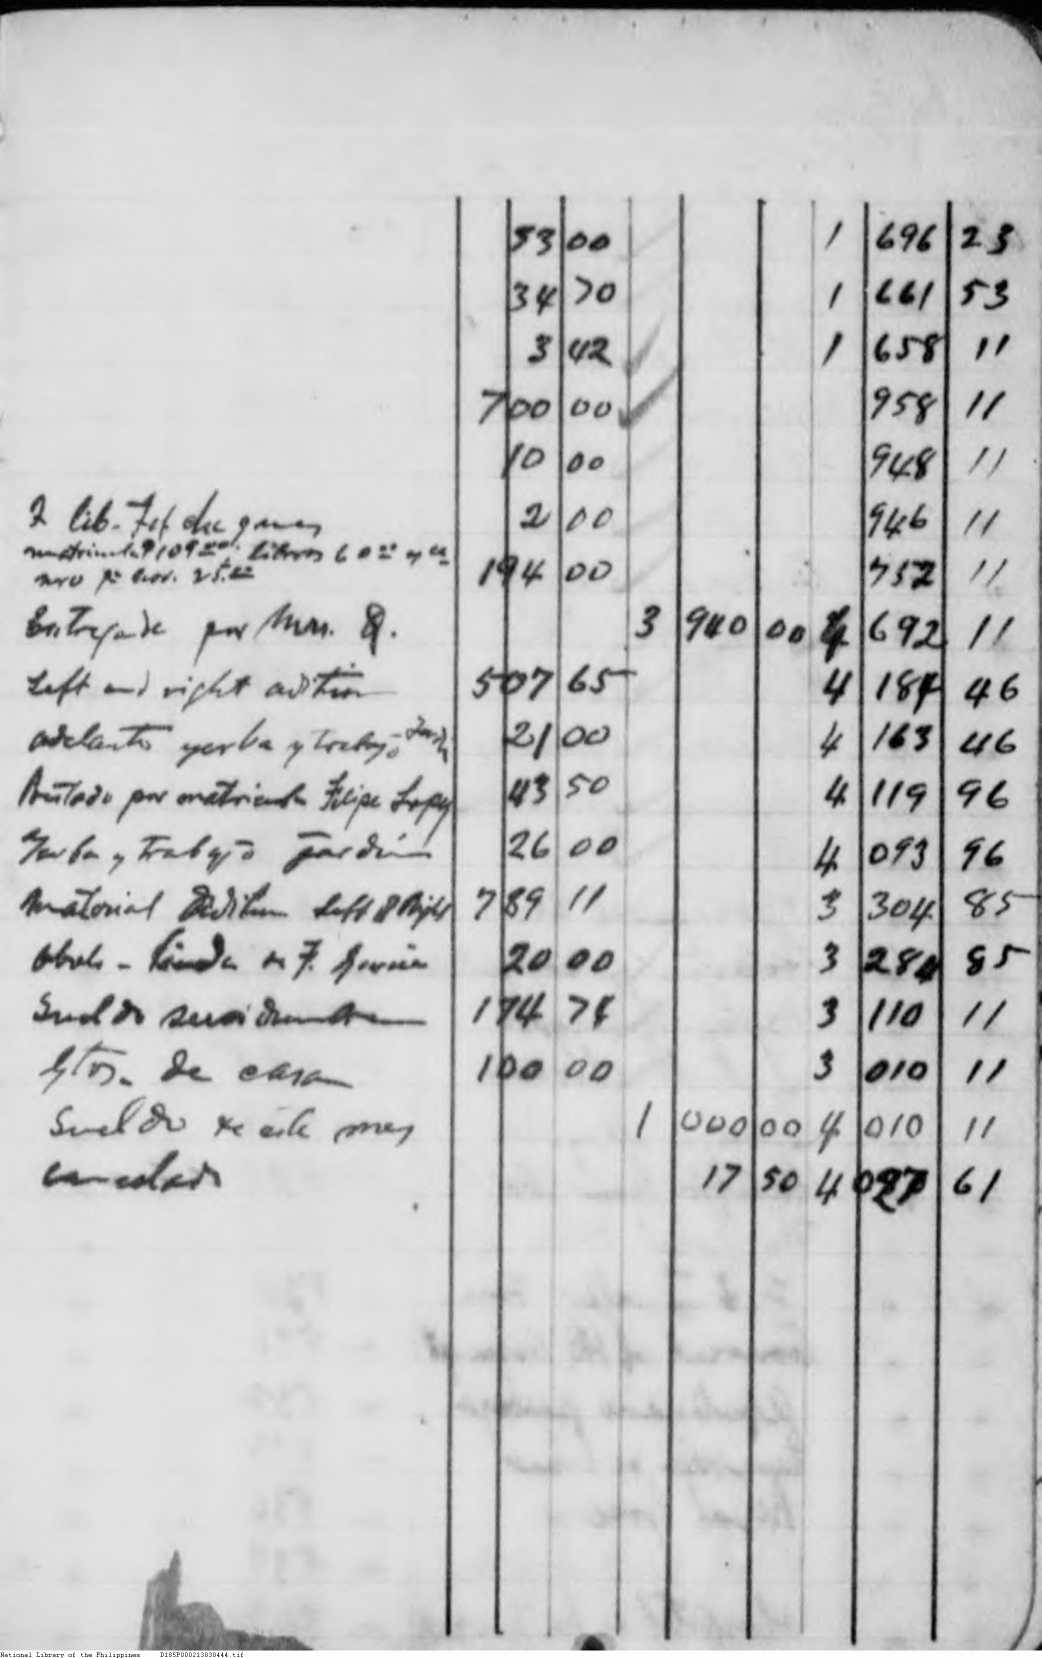 33 00 1 696 23
34 70 1 661 53
3 42 1 658 11
700 00 958 11
10 00 948 11
2 lib. 2 00 946 11
matricula ₱109.00 libros 60.00 y
25.00 194 00 752 11
Entregado por 3 940 00 4 692 11
Left and right adition 507 65 4 184 46
adelanto yerba y trabajo 21 00 4 163 46
por matricula Felipe Lopez 43 50 4 119 96
Yerba y trabajo jardin 26 00 4 093 96
Material Left & Right 789 11 3 304 85
20 00 3 284 85
Sueldo 174 74 3 110 11
Gtos. de casa 100 00 3 010 11
Sueldo de este mes 1 000 00 4 010 11
cancelado 17 50 4 027 61
National Library of the Philippines D185P000213838444.tif